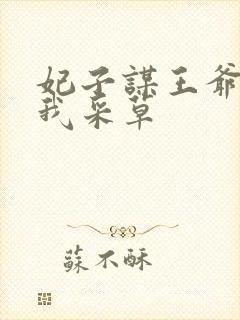 妃子謀王爺
我采草
蘇不酥